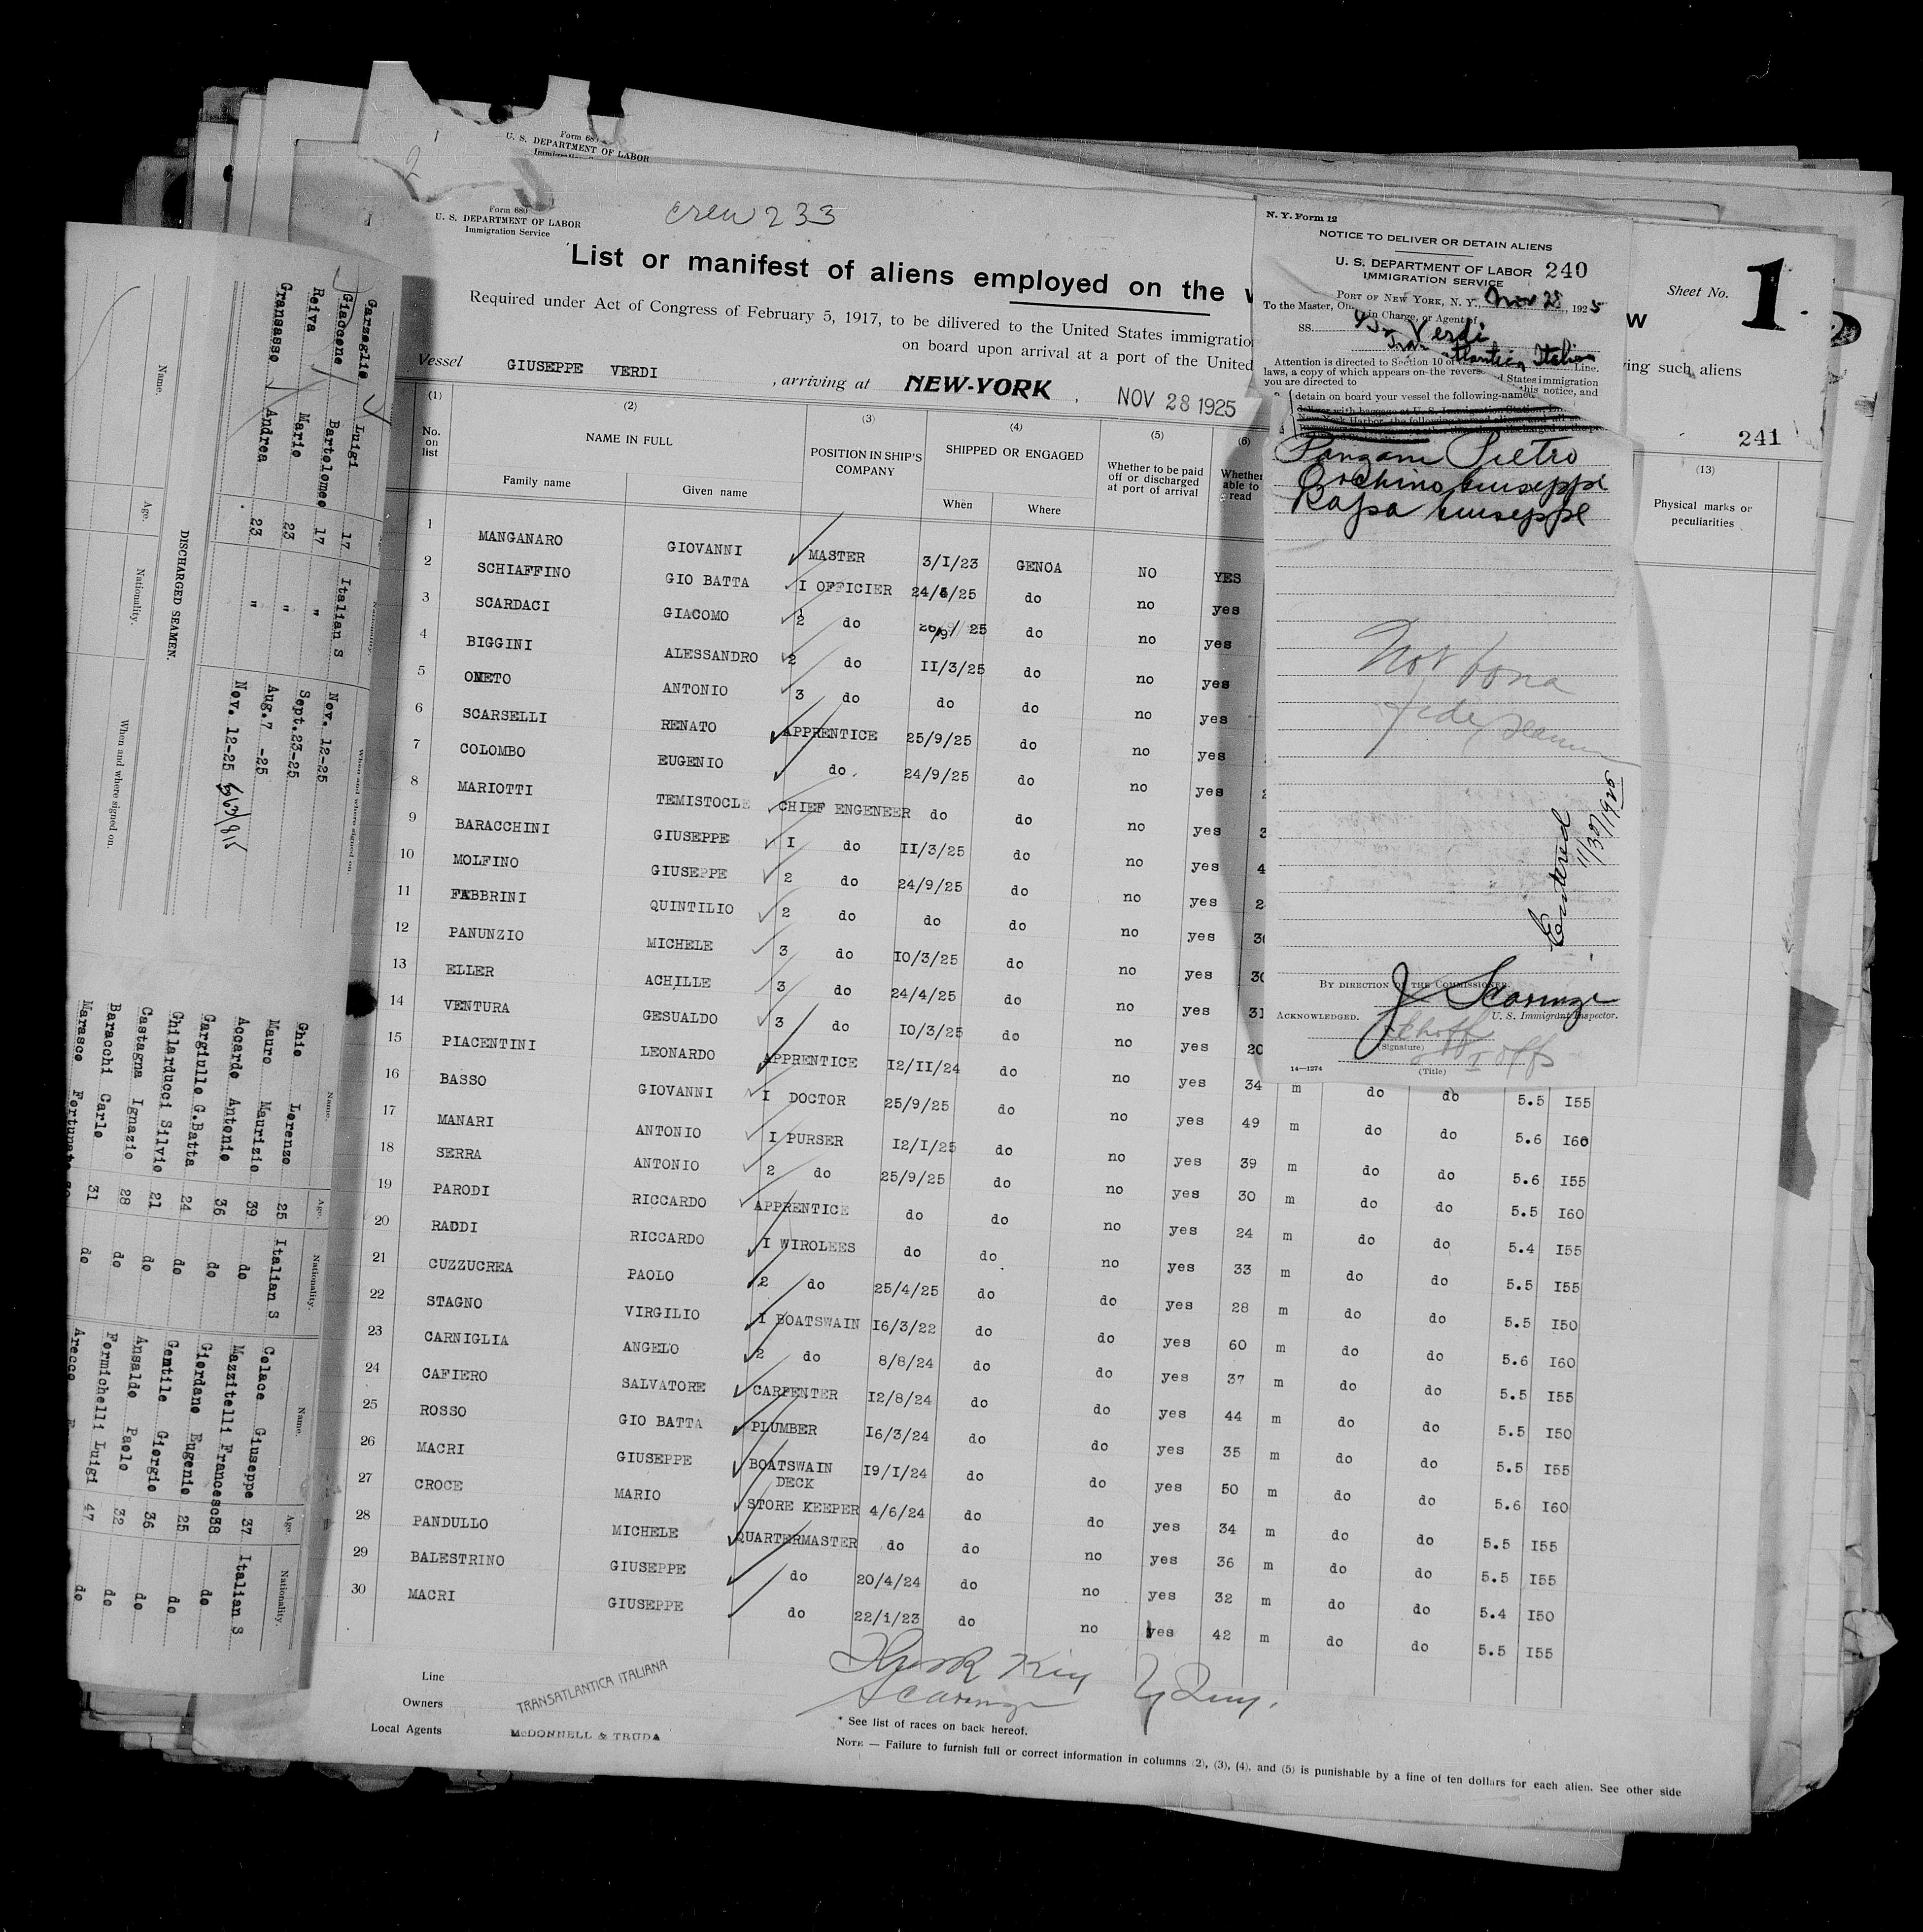 Form 680
U. S. DEPARTMENT OF LABOR
Form 680
U. S. DEPARTMENT OF LABOR
Immigration Service
crew 233
List or manifest of aliens employed on the
Required under Act of Congress of February 5, 1917, to be dilivered to the United States immigration
on board upon arrival at a port of the United
Vessel GIUSEPPE VERDI , arriving at NEW-YORK , NOV 28 1925
Sheet No. 1
ing such aliens
241
(1) (2) (3) (4) (5) (6) (13)
No. on list NAME IN FULL POSITION IN SHIP'S COMPANY SHIPPED OR ENGAGED Whether to be paid off or discharged at port of arrival Whether able to read Physical marks or peculiarities
Family name Given name When Where
1 MANGANARO GIOVANNI MASTER 3/I/23 GENOA NO YES
2 SCHIAFFINO GIO BATTA I OFFICIER 24/4/25 do no yes
3 SCARDACI GIACOMO 2 do 25 do no yes
4 BIGGINI ALESSANDRO 2 do II/3/25 do no yes
5 ONETO ANTONIO 3 do do do no yes
6 SCARSELLI RENATO APPRENTICE 25/9/25 do no yes
7 COLOMBO EUGENIO do. 24/9/25 do no yes
8 MARIOTTI TEMISTOCLE CHIEF ENGENEER do do no yes 3
9 BARACCHINI GIUSEPPE I do II/3/25 do no yes 4
10 MOLFINO GIUSEPPE 2 do 24/9/25 do no yes 2
11 FABBRINI QUINTILIO 2 do do do no yes 3
12 PANUNZIO MICHELE 3 do IO/3/25 do no yes 30
13 ELLER ACHILLE 3 do 24/4/25 do no yes 31
14 VENTURA GESUALDO 3 do IO/3/25 do no yes 20
15 PIACENTINI LEONARDO APPRENTICE I2/II/24 do no yes 34 m do do 5.5 I55
16 BASSO GIOVANNI I DOCTOR 25/9/25 do no yes 49 m do do 5.6 I60
17 MANARI ANTONIO I PURSER I2/I/25 do no yes 39 m do do 5.6 I55
18 SERRA ANTONIO 2 do 25/9/25 do no yes 30 m do do 5.5 I60
19 PARODI RICCARDO APPRENTICE do do no yes 24 m do do 5.4 I55
20 RADDI RICCARDO I WIROLEES do do no yes 33 m do do 5.5 I55
21 CUZZUCREA PAOLO 2 do 25/4/25 do do yes 28 m do do 5.5 I50
22 STAGNO VIRGILIO I BOATSWAIN I6/3/22 do do yes 60 m do do 5.6 I60
23 CARNIGLIA ANGELO 2 do 8/8/24 do do yes 37 m do do 5.5 I55
24 CAFIERO SALVATORE CARPENTER I2/8/24 do do yes 44 m do do 5.5 I50
25 ROSSO GIO BATTA PLUMBER I6/3/24 do do yes 35 m do do 5.5 I55
26 MACRI GIUSEPPE BOATSWAIN DECK I9/I/24 do do yes 50 m do do 5.6 I60
27 CROCE MARIO STORE KEEPER 4/6/24 do do yes 34 m do do 5.5 I55
28 PANDULLO MICHELE QUARTERMASTER do do no yes 36 m do do 5.5 I55
29 BALESTRINO GIUSEPPE do 20/4/24 do no yes 32 m do do 5.4 I50
30 MACRI GIUSEPPE do 22/1/23 do no yes 42 m do do 5.5 I55
Line TRANSATLANTICA ITALIANA
Owners
Local Agents McDONNELL & TRUDA
* See list of races on back hereof.
NOTE — Failure to furnish full or correct information in columns (2), (3), (4), and (5) is punishable by a fine of ten dollars for each alien. See other side
N. Y. Form 12
NOTICE TO DELIVER OR DETAIN ALIENS
U. S. DEPARTMENT OF LABOR 240
IMMIGRATION SERVICE
PORT OF NEW YORK, N. Y., Nov 28, 1925
To the Master, in Charge, or Agent of
SS. Verdi
Transatlantica Italian Line.
Attention is directed to Section 10 of
laws, a copy of which appears on the reverse States immigration
you are directed to this notice, and
detain on board your vessel the following-named
Pietro
Giuseppe
Rapsa Giuseppe
Not bona
fide seamen
Entered
11/30/1925
BY DIRECTION OF THE COMMISSIONER.
J Scaringe
U. S. Immigrant Inspector.
ACKNOWLEDGED.
(Signature)
(Title)
14—1274
Name. Age. Nationality. When and where signed on.
Garzoglio Luigi 17 Italian S Nov. 12-25
Giaccone Bartolomeo 17 " Sept.23-25
Reiva Mario 23 " Aug.7 -25
Gransasso Andrea 23 " Nov. 12-25
DISCHARGED SEAMEN.
Name. Age. Nationality. When and where signed on.
Name. Age. Nationality. Name. Age. Nationality.
Ghio Lorenzo 25 Italian S Colace Giuseppe 37 Italian S
Mauro Maurizio 39 do Mazzitelli Francesco38 do
Accardo Antonio 36 do Giordano Eugenio 25 do
Gargiullo G.Batta 24 do Gentile Giorgio 36 do
Ghilarducci Silvio 21 do Ansaldo Paolo 32 do
Castagna Ignazio 28 do Formichelli Luigi 47 do
Baracchi Carlo 31 do Arecco
Marasco Fortunato